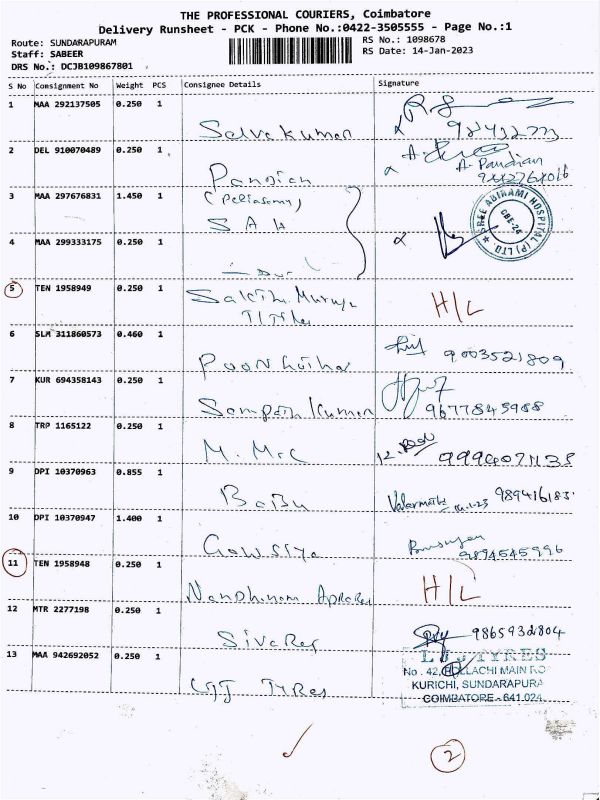 THE PROFESSIONAL COURIERS, Coimbatore
Delivery Runsheet - PCK - Phone No.:0422-3505555 - Page No.:1
Route: SUNDARAPURAM
RS No.: 1098678
Staff: SABEER
RS Date: 14-Jan-2023
DRS No.: DCJB109867801
S No Consignment No Weight PCS Consignee Details Signature
1 MAA 292137505 0.250 1
Selvakumar
2 DEL 910070489 0.250 1
Pandian A. Pandian
3 MAA 297676831 1.450 1
(Periasamy)
S A H
SREE ABIRAMI HOSPITAL (P) LTD
CBE-24
4 MAA 299333175 0.250 1
5 TEN 1958949 0.250 1
Sakthi Muruga H/L
6 SLM 311860573 0.460 1
9003521809
7 KUR 694358143 0.250 1
Sampath Kumar 9677845988
8 TRP 1165122 0.250 1
9 DPI 10370963 0.855 1
Babu Valarmathi
10 DPI 10370947 1.400 1
Gowsiya 9894545996
11 TEN 1958948 0.250 1
H/L
12 MTR 2277198 0.250 1
9865932804
13 MAA 942692052 0.250 1
LGJ TYRES
No. 42, POLLACHI MAIN RO
KURICHI, SUNDARAPURA
COIMBATORE - 641 024
2